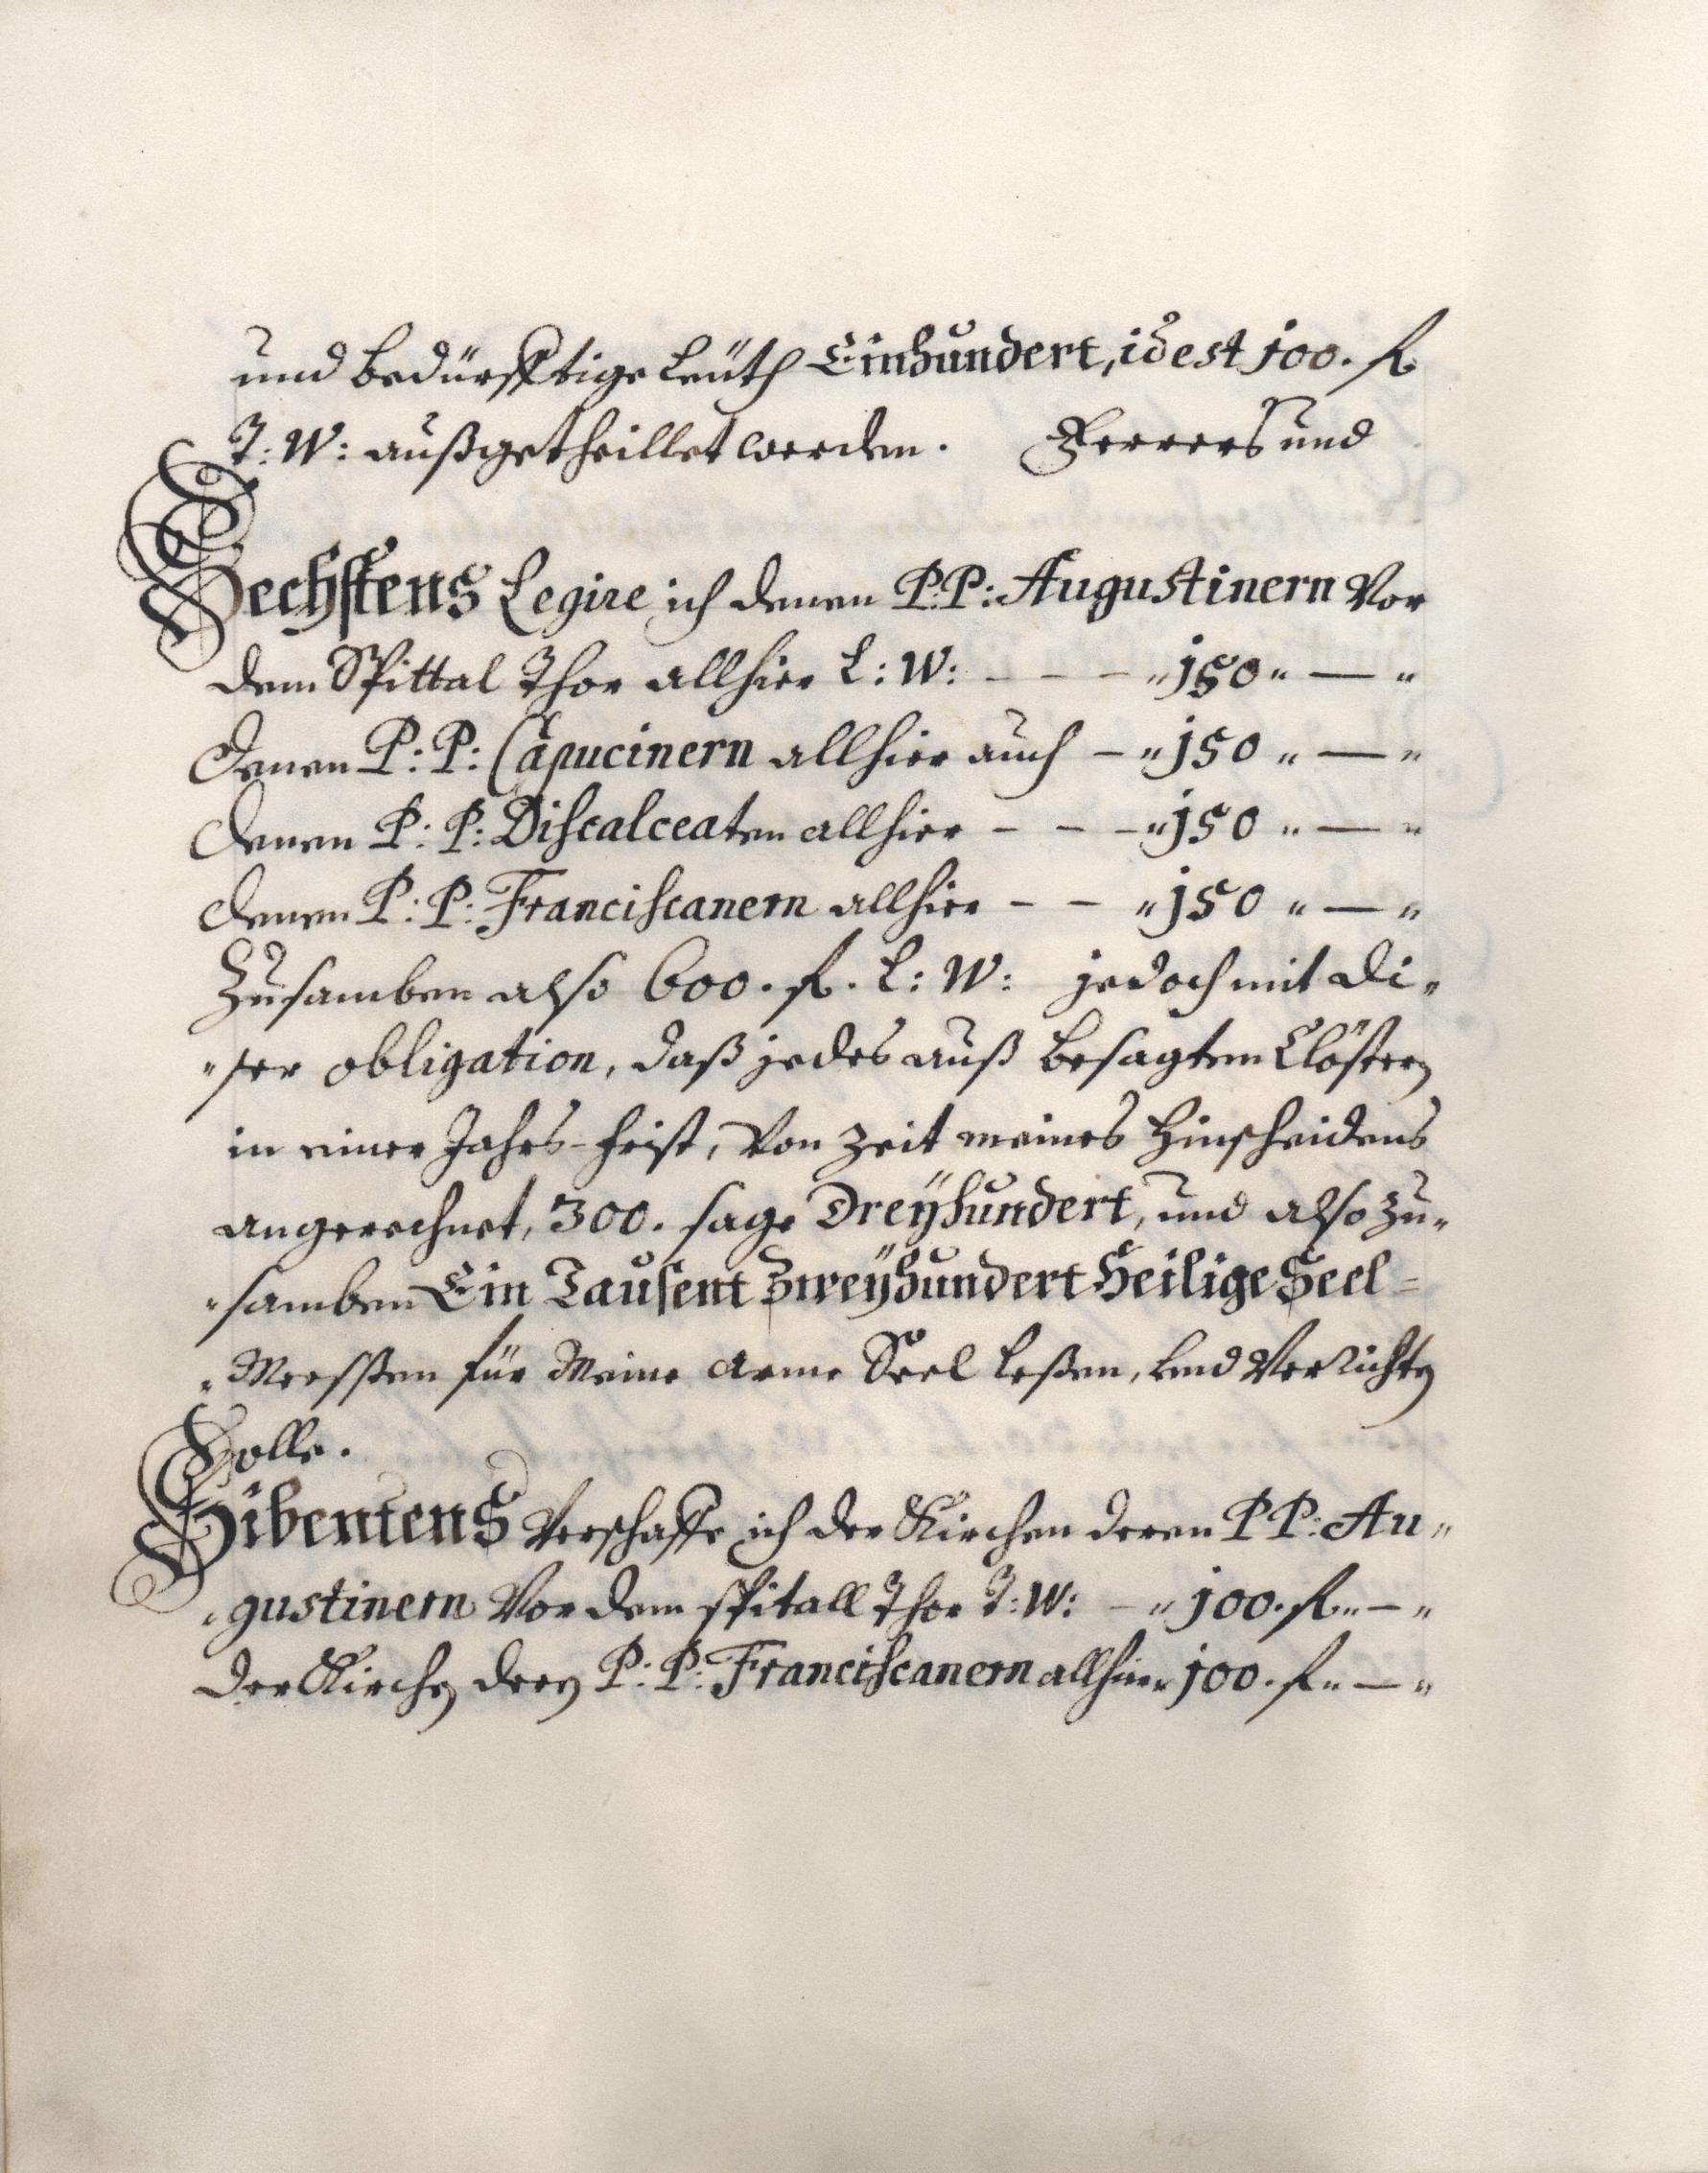 und bedürfftige Leüth Einhundert, id est 100. fl.
T: W: außgetheillet werden. Ferrers und
Sechstens Legire ich denen P:P: Augustinern Vor
dem Spittal Thor allhier L: W: - - - „150 „ — „
denen P: P: Capucinern allhier auch - „150 „ — „
denen P: P: Discalceaten allhier - - - „150 „ — „
denen P: P: Franciscanern allhier - - „150 „ — „
Zusamben also 600. fl. L: W: jedoch mit di„
„ser obligation, daß jedes auß besagten Clöstern
in einer Jahrs-frist, Von Zeit meines Hinscheidens
angerechnet, 300. sage Dreÿhundert, und also zu„
„samben Ein Tausent Zweÿhundert Heilige Seel=
„Meessen für Meine arme Seel leßen, und Verrichten
Solle.
Sibentens Verschaffe ich der Kirchen deren P P: Au„
„gustinern Vor dem spitall Thor T: W: - „100. fl. „ — „
der Kirchen deren P: P: Franciscanern allhier 100. fl. „ — „